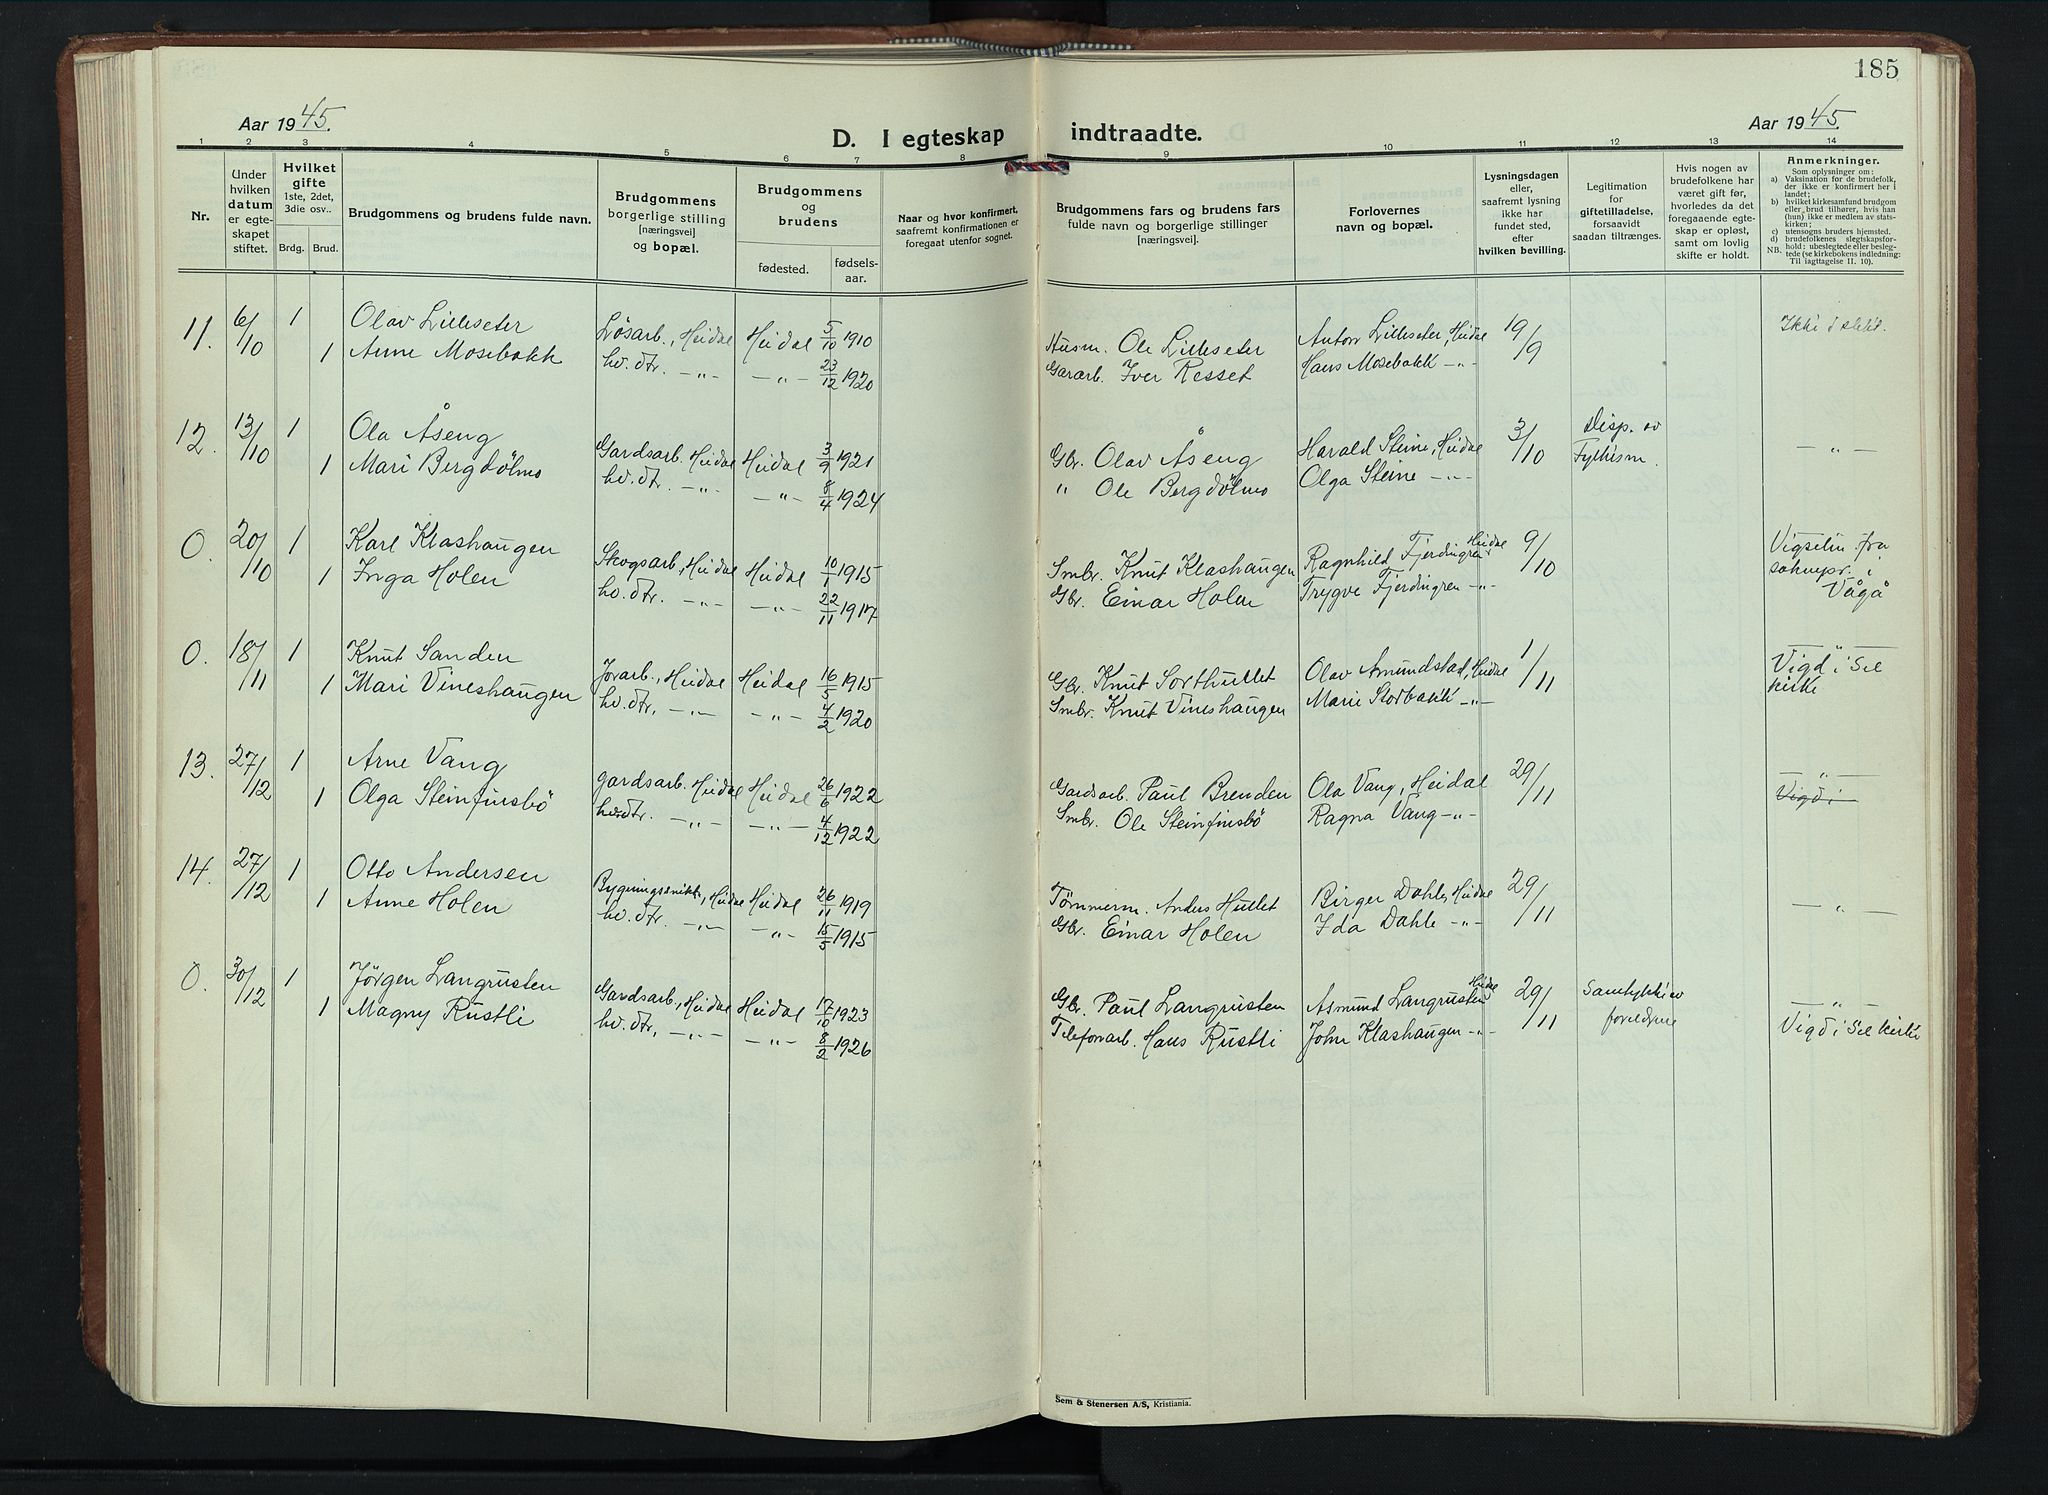 185
Aar 1945.
D. I egteskap indtraadte.
Aar 1945.
1 2 3 4 5 6 7 8 9 10 11 12 13 14
Nr.
Under hvilken datum er egteskapet stiftet.
Hvilket gifte 1ste, 2det, 3die osv..
Brdg. Brud.
Brudgommens og brudens fulde navn.
Brudgommens borgerlige stilling [næringsvei] og bopæl.
Brudgommens og brudens
fødested. fødselsaar.
Naar og hvor konfirmert, saafremt konfirmationen er foregaat utenfor sognet.
Brudgommens fars og brudens fars fulde navn og borgerlige stillinger [næringsvei].
Forlovernes navn og bopæl.
Lysningsdagen eller, saafremt lysning ikke har fundet sted, efter hvilken bevilling.
Legitimation for giftetilladelse, forsaavidt saadan tiltrænges.
Hvis nogen av brudefolkene har været gift før, hvorledes da det foregaaende egteskap er opløst, samt om lovlig skifte er holdt.
Anmerkninger.
Som oplysninger om:
a) Vaksination for de brudefolk, der ikke er konfirmert her i landet;
b) hvilket kirkesamfund brudgom eller brud tilhører, hvis han (hun) ikke er medlem av statskirken;
c) utensogns bruders hjemsted.
d) brudefolkenes slegtskapsforhold: ubeslegtede eller beslegtede (se kirkebokens indledning: Til iagttagelse II. 10).
NB.
11. 6/10 1 Olav Lilleseter Løsarb., Heidal Heidal 5/10 1910 Husm. Ole Lilleseter Anton Lilleseter, Heidal 19/9 Ikke i slekt.
1 Anne Mosebakk hv. dtr. -"- -"- 23/12 1920 Gararb. Iver Resset Hans Mosebakk -"-
12. 13/10 1 Ola Åseng Gardsarb. Heidal Heidal 3/9 1921 Gbr. Olav Åseng Harald Steine, Heidal 3/10 Disp. av Fylkesm. -"-
1 Mari Bergdølmo hv. dtr. -"- -"- 8/4 1924 " Ole Bergdølmo Olga Steine -"-
0. 20/10 1 Karl Klashaugen Skogsarb., Heidal Heidal 10/1 1915 Smbr. Knut Klashaugen Ragnhild Fjerdingren Heidal 9/10 Vigselin. fra soknepr. i Vågå
1 Inga Holen hv. dtr. -"- -"- 22/11 1917 Gbr. Einar Holen Trygve Fjerdingren -"-
0. 18/11 1 Knut Sanden Jorarb., Heidal Heidal 16/5 1915 Gbr. Knut Sorthullet Olav Amundstad, Heidal 1/11 Vigd i Sel kirke
1 Mari Vineshaugen hv. dtr. -"- -"- 4/2 1920 Smbr. Knut Vineshaugen Marie Storbakk -"-
13. 27/12 1 Arne Vang gardsarb. Heidal Heidal 26/6 1922 Gardsarb. Paul Brenden Ola Vang, Heidal 29/11 -"-
1 Olga Steinfinsbö hv. dtr. -"- -"- 4/12 1922 Smbr. Ole Steinfinsbö Ragna Vang -"- Vigd i
14. 27/12 1 Otto Andersen Bygningssnikk., Heidal Heidal 26/11 1919 Tömmerm. Anders Hullet Birger Dahle, Heidal 29/11 -"-
1 Anne Holen hv. dtr. -"- -"- 15/5 1915 Gbr. Einar Holen Ida Dahle -"-
0. 30/12 1 Jørgen Langrusten Gardsarb., Heidal Heidal 17/10 1923 Gbr. Paul Langrusten Asmund Langrusten Heidal 29/11 Samtykke av foreldrene -"-
1 Magny Rustli hv. dtr., -"- -"- 8/2 1926 Telefonarb. Hans Rustli John Klashaugen -"- Vigd i Sel kirke
Sem & Stenersen A/S, Kristiania.